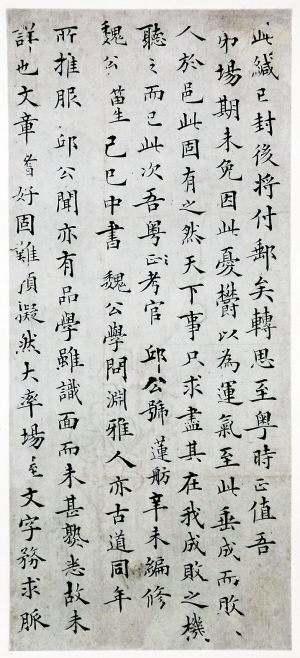 此緘已封後將付郵矣轉思至粵時正值吾
卯場期未免因此憂欝以為運氣至此垂成而敗
人於邑此固有之然天下事只求盡其在我成敗之機
聽之而已此次吾粵正考官邱公號蓮舫辛未編修
魏公笛生己巳中書魏公學問淵雅人亦古道同年
所推服邱公聞亦有品學雖識面而未甚熟悉故未
詳也文章嗜好固難預擬然大率場文字務求脈